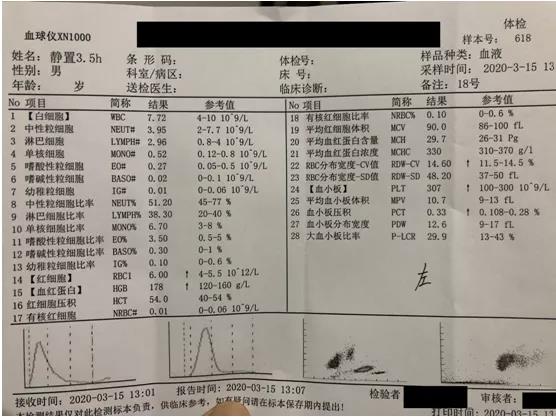 血球仪XN1000
体检
样本号： 618
姓名：静置3.5h
条 形 码：
体检号：
样品种类：血液
性别：男
科室/病区：
床 号：
采样时间：2020-03-15 13
年龄： 岁
送检医生：
临床诊断：
备注：18号
No 项目 简称 结果 参考值
1 【白细胞】 WBC 7.72 4-10 10^9/L
2 中性粒细胞 NEUT# 3.95 2-7.7 10^9/L
3 淋巴细胞 LYMPH# 2.96 0.8-4 10^9/L
4 单核细胞 MONO# 0.52 0.12-0.8 10^9/L
5 嗜酸性粒细胞 EO# 0.27 0.05-0.5 10^9/L
6 嗜碱性粒细胞 BASO# 0.02 0-0.1 10^9/L
7 幼稚粒细胞 IG# 0.01 0-0.06 10^9/L
8 中性粒细胞比率 NEUT% 51.20 45-77 %
9 淋巴细胞比率 LYMPH% 38.30 20-40 %
10 单核细胞比率 MONO% 6.70 3-8 %
11 嗜酸性粒细胞比率 EO% 3.50 0.5-5 %
12 嗜碱性粒细胞比率 BASO% 0.30 0-1 %
13 幼稚粒细胞比率 IG% 0.10 0-0.6 %
14 【红细胞】 RBC1 6.00 ↑ 4-5.5 10^12/L
15 【血红蛋白】 HGB 178 ↑ 120-160 g/L
16 红细胞压积 HCT 54.0 40-54 %
17 有核红细胞 NRBC# 0.01 0-0.06 10^9/L
No 项目 简称 结果 参考值
18 有核红细胞比率 NRBC% 0.10 0-0.6 %
19 平均红细胞体积 MCV 90.0 86-100 fL
20 平均血红蛋白含量 MCH 29.7 26-31 Pg
21 平均血红蛋白浓度 MCHC 330 310-370 g/l
22 RBC分布宽度-CV值 RDW-CV 14.60 ↑ 11.5-14.5 %
23 RBC分布宽度-SD值 RDW-SD 48.20 37-50 fL
24 【血小板】 PLT 307 ↑ 100-300 10^9/L
25 平均血小板体积 MPV 10.7 9-13 fL
26 血小板压积 PCT 0.33 ↑ 0.108-0.28 %
27 血小板分布宽度 PDW 12.6 9-17 fL
28 大血小板比率 P-LCR 29.9 13-43 %
左
接收时间：2020-03-15 13:01
报告时间：2020-03-15 13:07
检验者
审核者：
本检测结果仅对此检测标本负责，供临床参考，如有疑问请在标本保存期内提出！
打印时间：2020-03-15 13